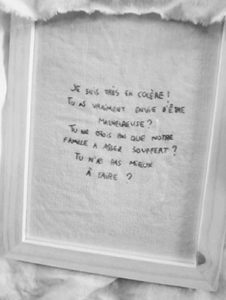 JE SUIS TRÈS EN COLÈRE !
TU AS VRAIMENT ENVIE D'ÊTRE
MALHEUREUSE ?
TU NE CROIS PAS QUE NOTRE
FAMILLE A ASSEZ SOUFFERT ?
TU N'AS PAS MIEUX
À FAIRE ?